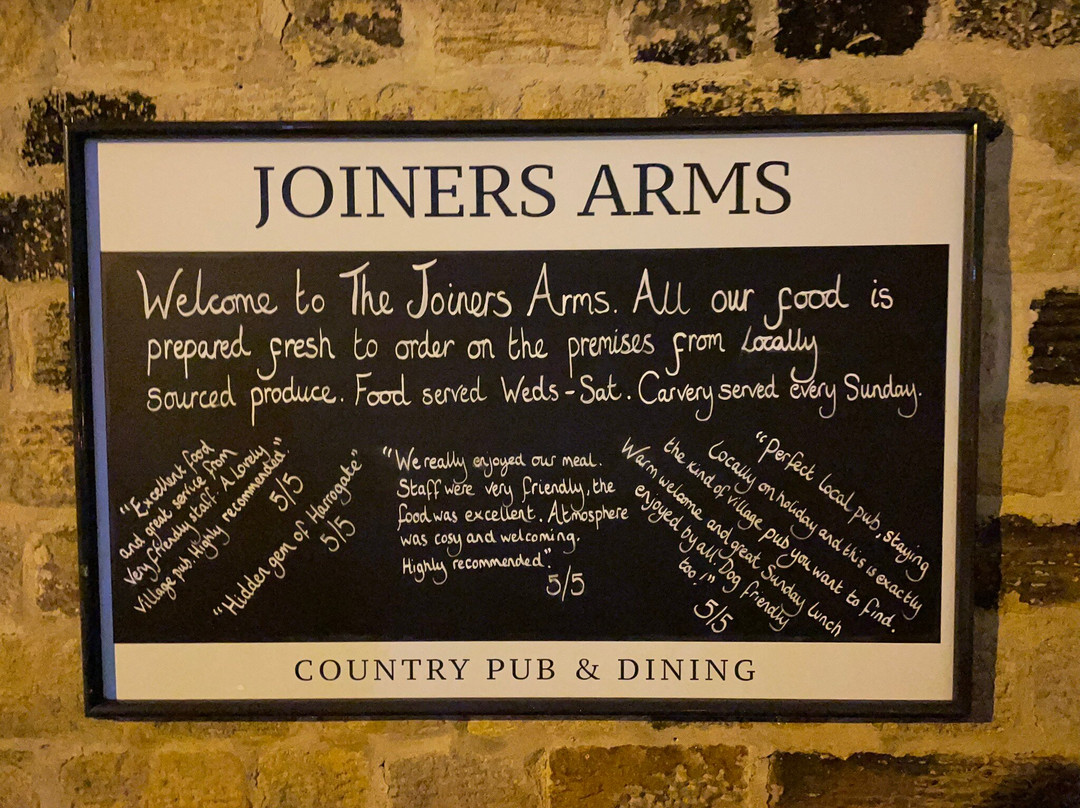 JOINERS ARMS
Welcome to The Joiners Arms. All our food is
prepared fresh to order on the premises from Locally
sourced produce. Food served Weds-Sat. Carvery served every Sunday.
"Excellent food
and great service from
Very friendly staff. A lovely
Village pub. Highly recommended."
5/5
"Hidden gem of Harrogate"
5/5
"We really enjoyed our meal.
Staff were very friendly, the
food was excellent. Atmosphere
was cosy and welcoming.
Highly recommended".
5/5
"Perfect local pub, staying
Locally on holiday and this is exactly
the kind of village pub you want to find.
Warm welcome and great Sunday lunch
enjoyed by all. Dog friendly
too!"
5/5
COUNTRY PUB & DINING